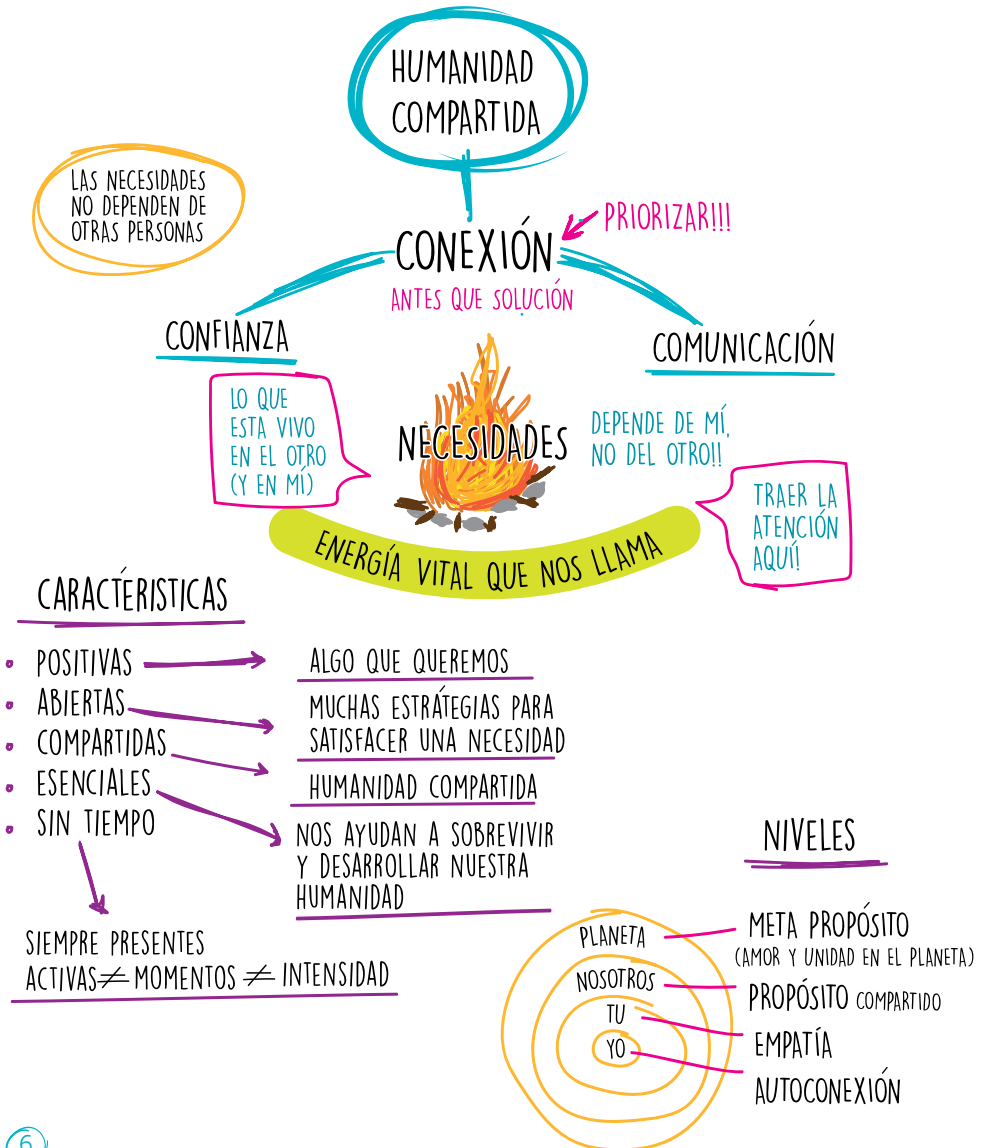 HUMANIDAD
COMPARTIDA
LAS NECESIDADES
NO DEPENDEN DE
OTRAS PERSONAS
PRIORIZAR!!!
CONEXIÓN
ANTES QUE SOLUCIÓN
CONFIANZA
COMUNICACIÓN
LO QUE
ESTA VIVO
EN EL OTRO
(Y EN MÍ)
NECESIDADES
DEPENDE DE MÍ,
NO DEL OTRO!!
TRAER LA
ATENCIÓN
AQUÍ!
ENERGÍA VITAL QUE NOS LLAMA
CARACTÉRISTICAS
• POSITIVAS
• ABIERTAS
• COMPARTIDAS
• ESENCIALES
• SIN TIEMPO
ALGO QUE QUEREMOS
MUCHAS ESTRÁTEGIAS PARA
SATISFACER UNA NECESIDAD
HUMANIDAD COMPARTIDA
NOS AYUDAN A SOBREVIVIR
Y DESARROLLAR NUESTRA
HUMANIDAD
SIEMPRE PRESENTES
ACTIVAS ≠ MOMENTOS ≠ INTENSIDAD
NIVELES
PLANETA
NOSOTROS
TU
YO
META PROPÓSITO
(AMOR Y UNIDAD EN EL PLANETA)
PROPÓSITO COMPARTIDO
EMPATÍA
AUTOCONEXIÓN
6